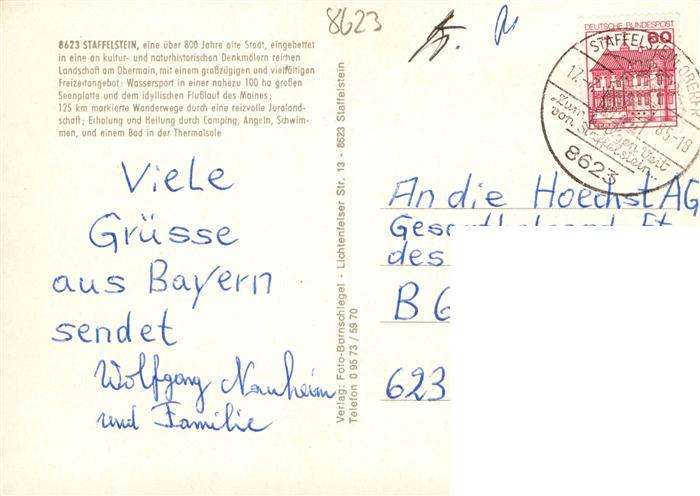 8623
8623 STAFFELSTEIN, eine über 800 Jahre alte Stadt, eingebettet
in eine an kultur- und naturhistorischen Denkmälern reichen
Landschaft am Obermain, mit einem großzügigen und vielfältigen
Freizeitangebot: Wassersport in einer nahezu 100 ha großen
Seenplatte und dem idyllischen Flußlauf des Maines;
125 km markierte Wanderwege durch eine reizvolle Juraland-
schaft; Erholung und Heilung durch Camping, Angeln, Schwim-
men, und einem Bad in der Thermalsole
Viele
Grüsse
aus Bayern
sendet
Wolfgang Nauheim
und Familie
Verlag: Foto-Bornschlegel - Lichtenfelser Str. 13 - 8623 Staffelstein
Telefon 0 95 73 / 59 70
DEUTSCHE BUNDESPOST
60
STAFFELSTEIN
85-18
von Staffelstein
8623
An die Hoechst AG
des
B 6
623